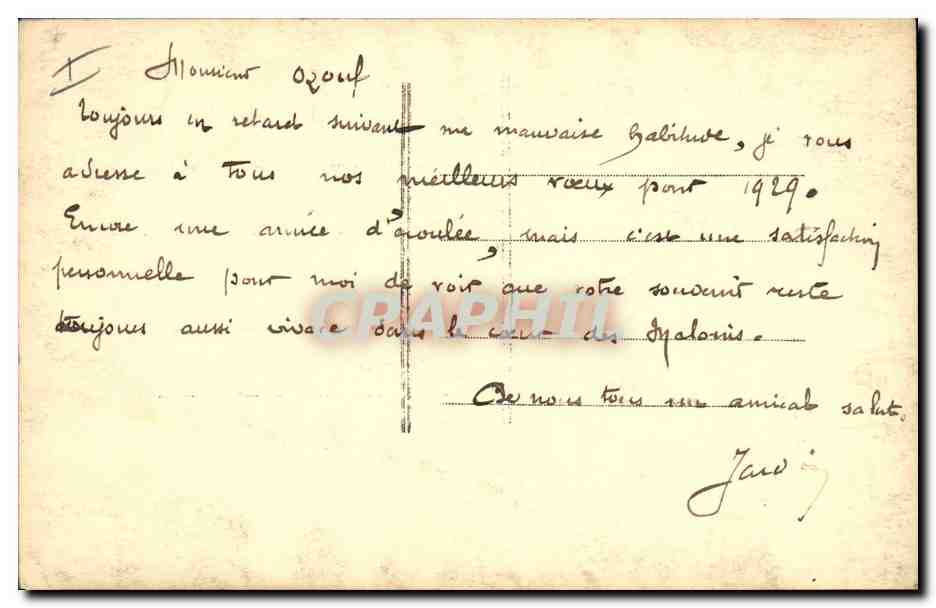 I Monsieur Ozouf
Toujours en retard suivant me mauvaise habitude, je vous
adresse à tous nos meilleurs vœux pour 1929.
Encore une année d'écoulée, mais c'est une satisfaction
personnelle pour moi de voir que votre souvenir reste
toujours aussi vivace dans le cœur des Malouins.
CPAPHIL
De nous tous un amical salut.